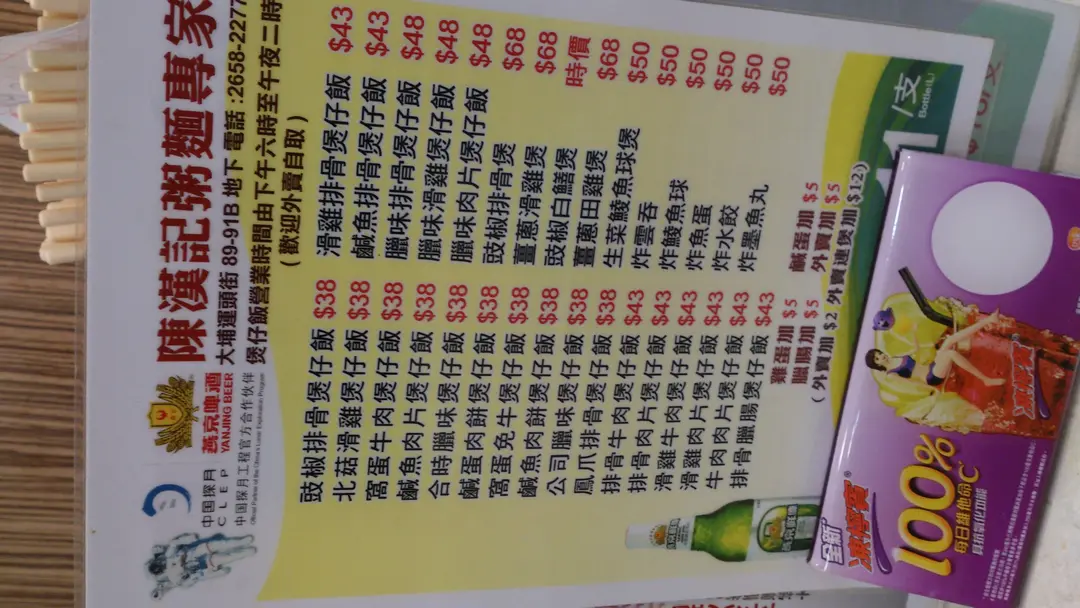 陳漢記粥麵專家
大埔運頭街 89-91B 地下 電話 :2658-2277
煲仔飯營業時間由下午六時至午夜二時
( 歡迎外賣自取 )
燕京啤酒
YANJING BEER
中国探月
CLEP
中國探月工程官方合作伙伴
豉椒排骨煲仔飯 $38
北菇滑雞煲仔飯 $38
窩蛋牛肉煲仔飯 $38
鹹魚肉片煲仔飯 $38
合時臘味煲仔飯 $38
鹹蛋肉餅煲仔飯 $38
窩蛋免牛煲仔飯 $38
鹹魚肉餅煲仔飯 $38
公司臘味煲仔飯 $38
鳳爪排骨煲仔飯 $38
排骨牛肉煲仔飯 $43
排骨肉片煲仔飯 $43
滑雞牛肉煲仔飯 $43
滑雞肉片煲仔飯 $43
牛肉肉片煲仔飯 $43
排骨臘腸煲仔飯 $43
滑雞排骨煲仔飯 $43
鹹魚排骨煲仔飯 $43
臘味排骨煲仔飯 $48
臘味滑雞煲仔飯 $48
臘味肉片煲仔飯 $48
豉椒排骨煲 $68
薑蔥滑雞煲 $68
豉椒白鱔煲 時價
薑蔥田雞煲 $68
生菜鯪魚球煲 $50
炸雲吞 $50
炸鯪魚球 $50
炸魚蛋 $50
炸水餃 $50
炸墨魚丸 $50
雞蛋加 $5 鹹蛋加 $5
臘腸加 $5 外賣加 $5
( 外賣加 $2 外賣連煲加 $12)
/支
Bottle(L)
全新
100%
每日維他命C
具抗氧化功能